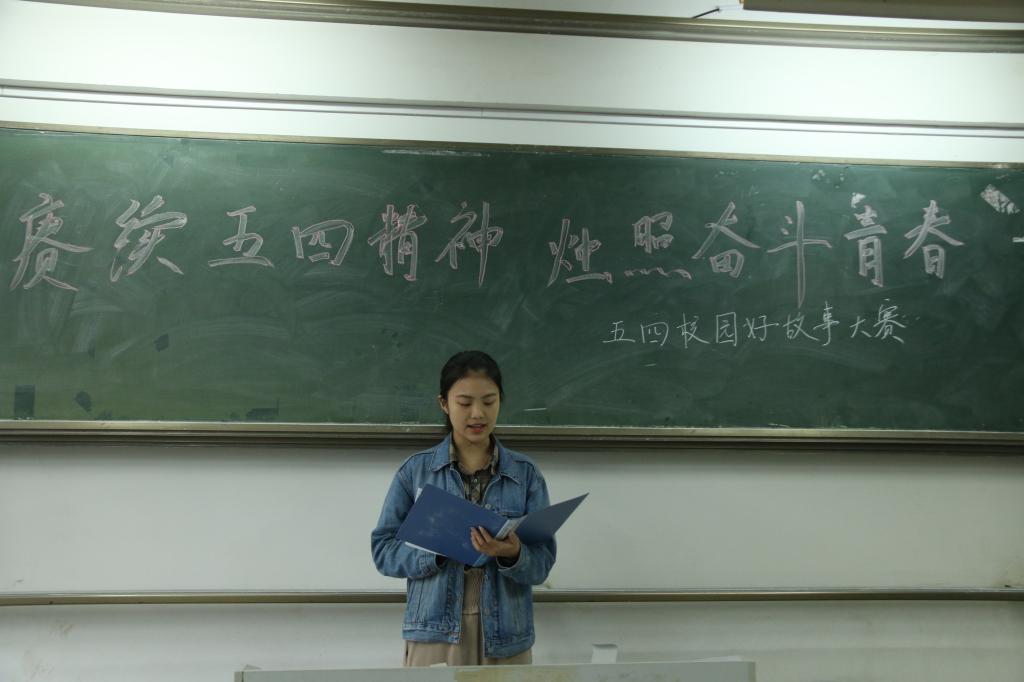 赓续五四精神 烛照奋斗青春
五四校园好故事大赛